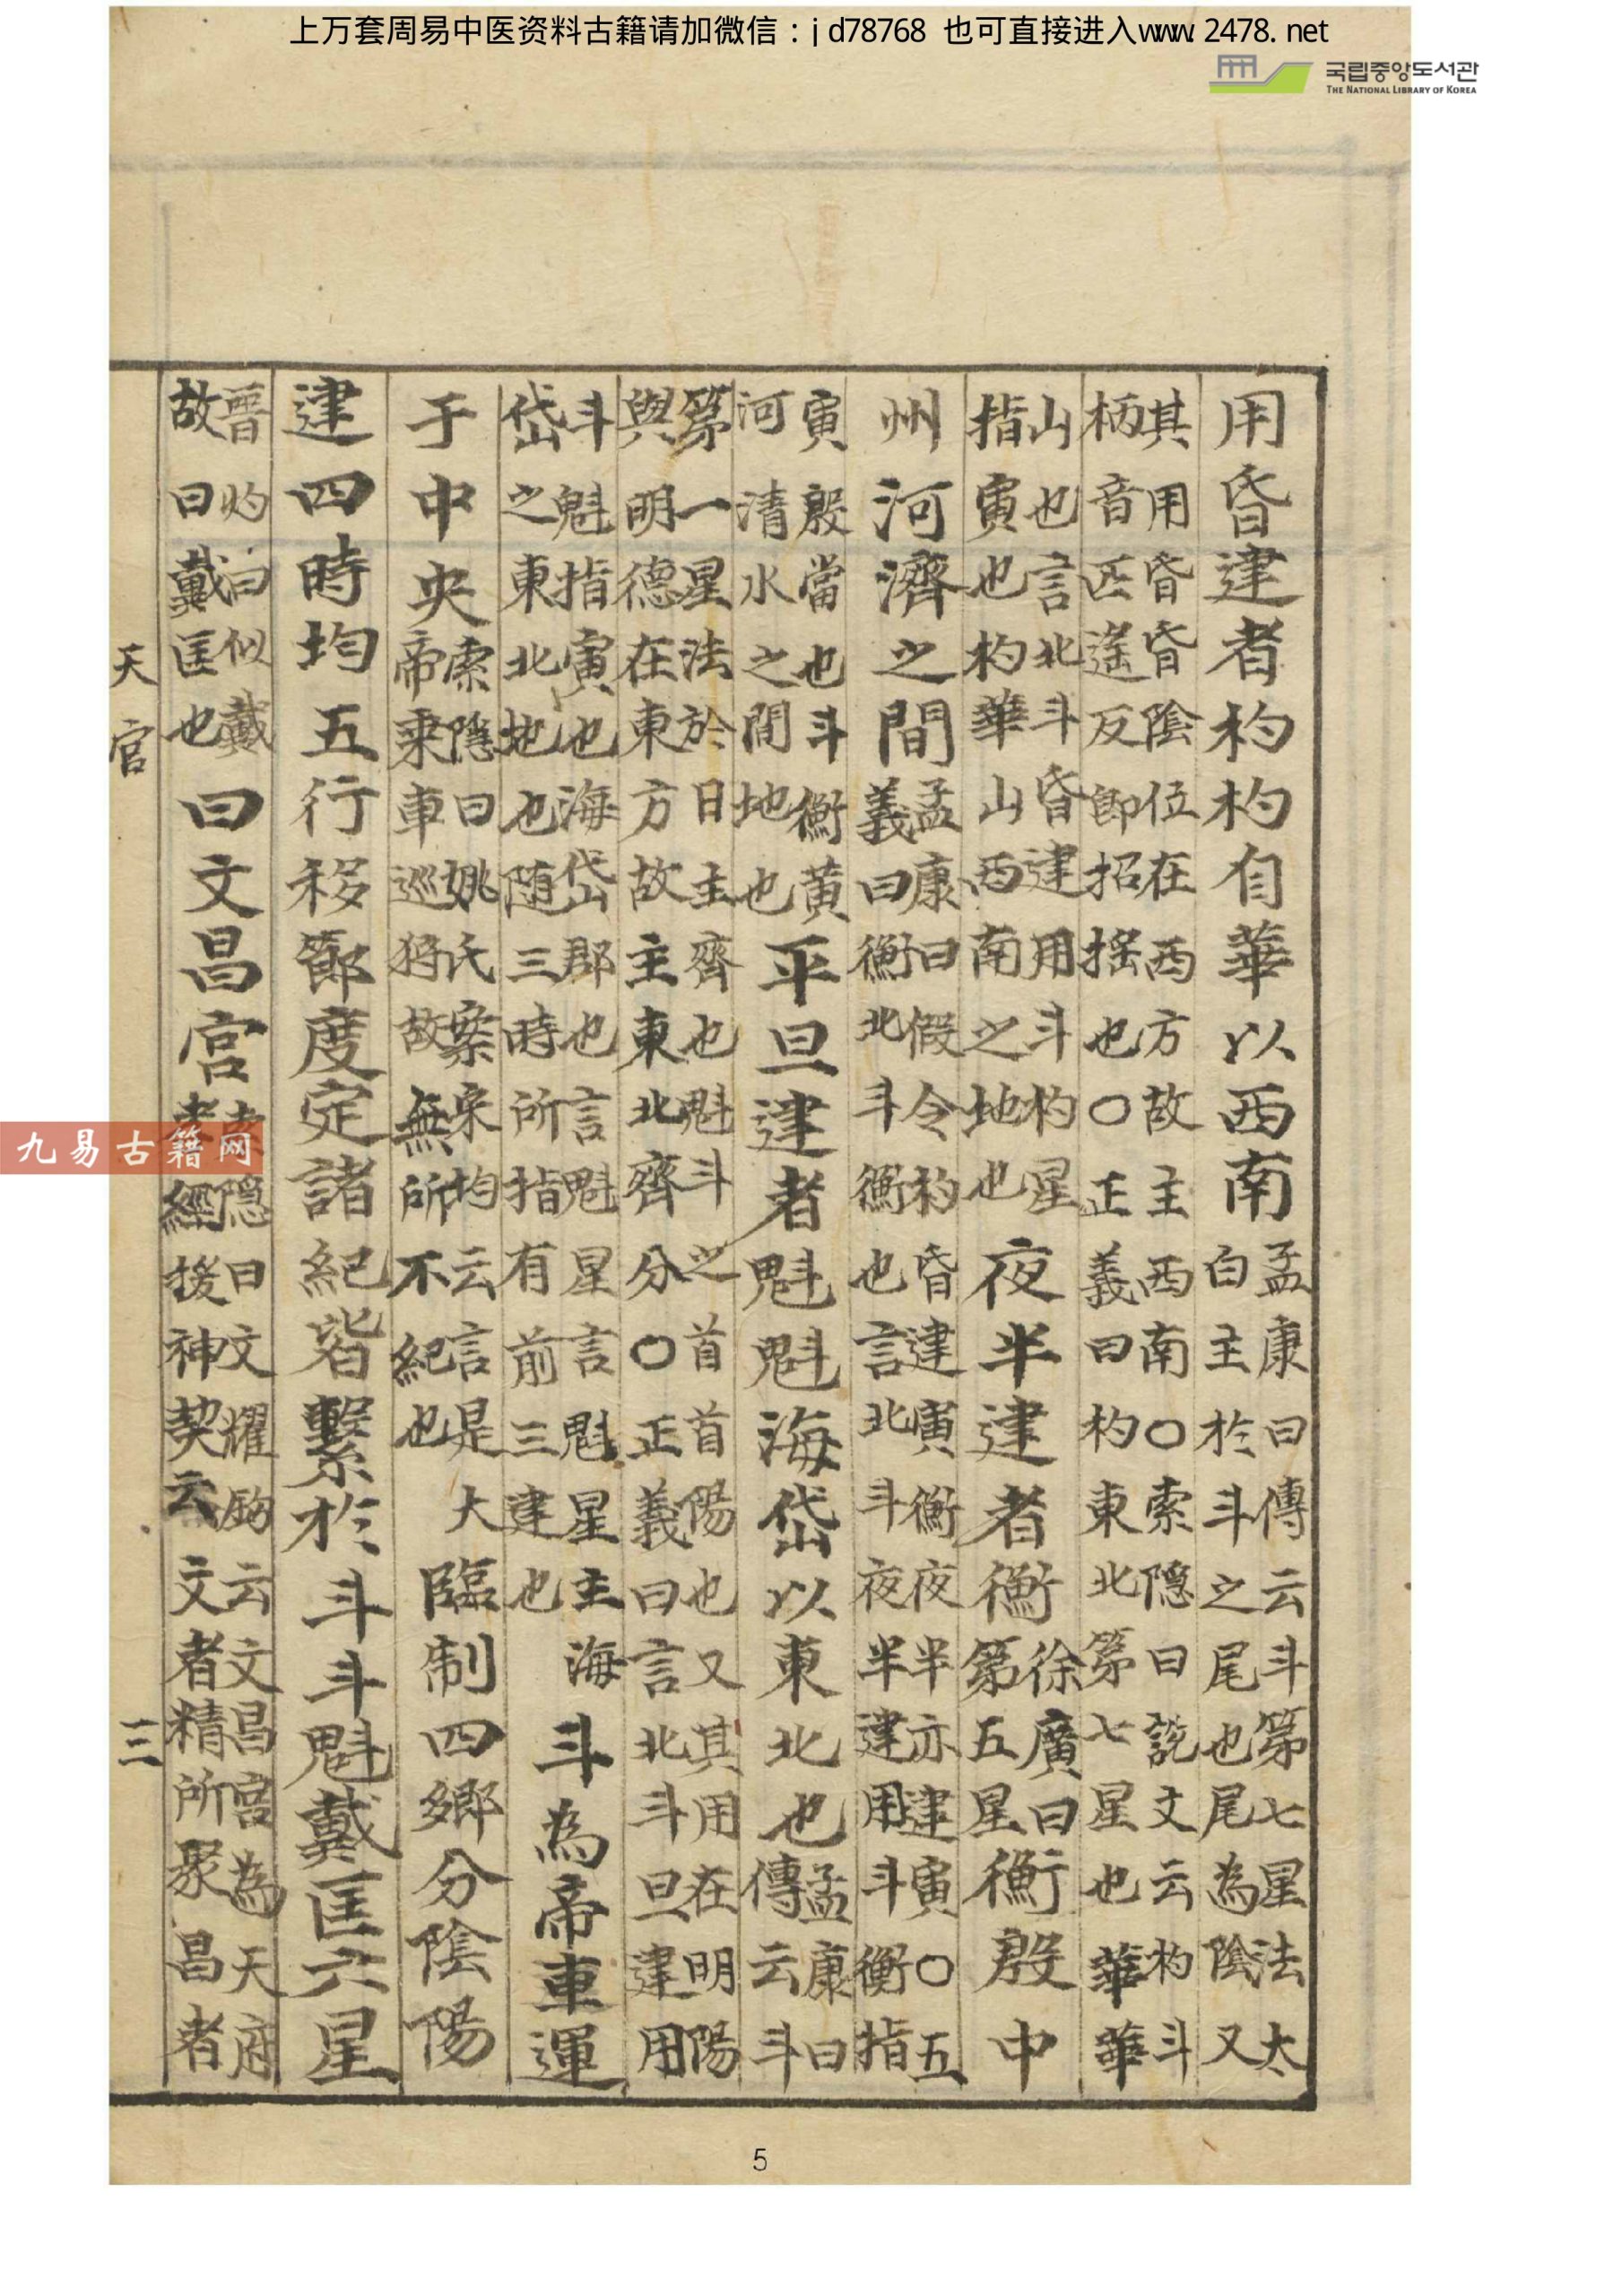 上万套周易中医资料古籍请加微信：jd78768 也可直接进入www.2478.net
국립중앙도서관
THE NATIONAL LIBRARY OF KOREA
用昏建者杓杓自華以西南孟康曰傳云斗第七星法太
白主於斗之尾也尾為陰又
其用昏昏陰位在西方故主西南○索隠曰說文云杓斗
柄音匹遙反即招搖也○正義曰杓東北第七星也華華
山也言北斗昏建用斗杓星
指寅也杓華山西南之地也夜半建者衡徐廣曰
第五星衡殷中
州河濟之間孟康曰假令杓昏建寅衡夜半亦建寅○五
義曰衡北斗衡也言北斗夜半建用斗衡指
寅殷當也斗衡黃
河清水之間地也平旦建者魁魁海岱以東北也孟康曰
傳云斗
第一星法於日主齊也魁斗之首首陽也又其用在明陽
與明德在東方故主東北齊分○正義曰言北斗旦建用
斗魁指寅也海岱郡也言魁星言魁星主海
岱之東北地也随三時所指有前三建也斗為帝車運
于中央索隠曰姚氏案宋均云言是大
帝乗車巡狩故無所不紀也臨制四鄉分陰陽
建四時均五行移節度定諸紀皆繫於斗斗魁戴匡六星
晋灼曰似戴
故曰戴匡也曰文昌宮索隠曰文耀鈎云文昌宮為天府
孝經援神契云文者精所聚昌者
天官
三
九易古籍网
5